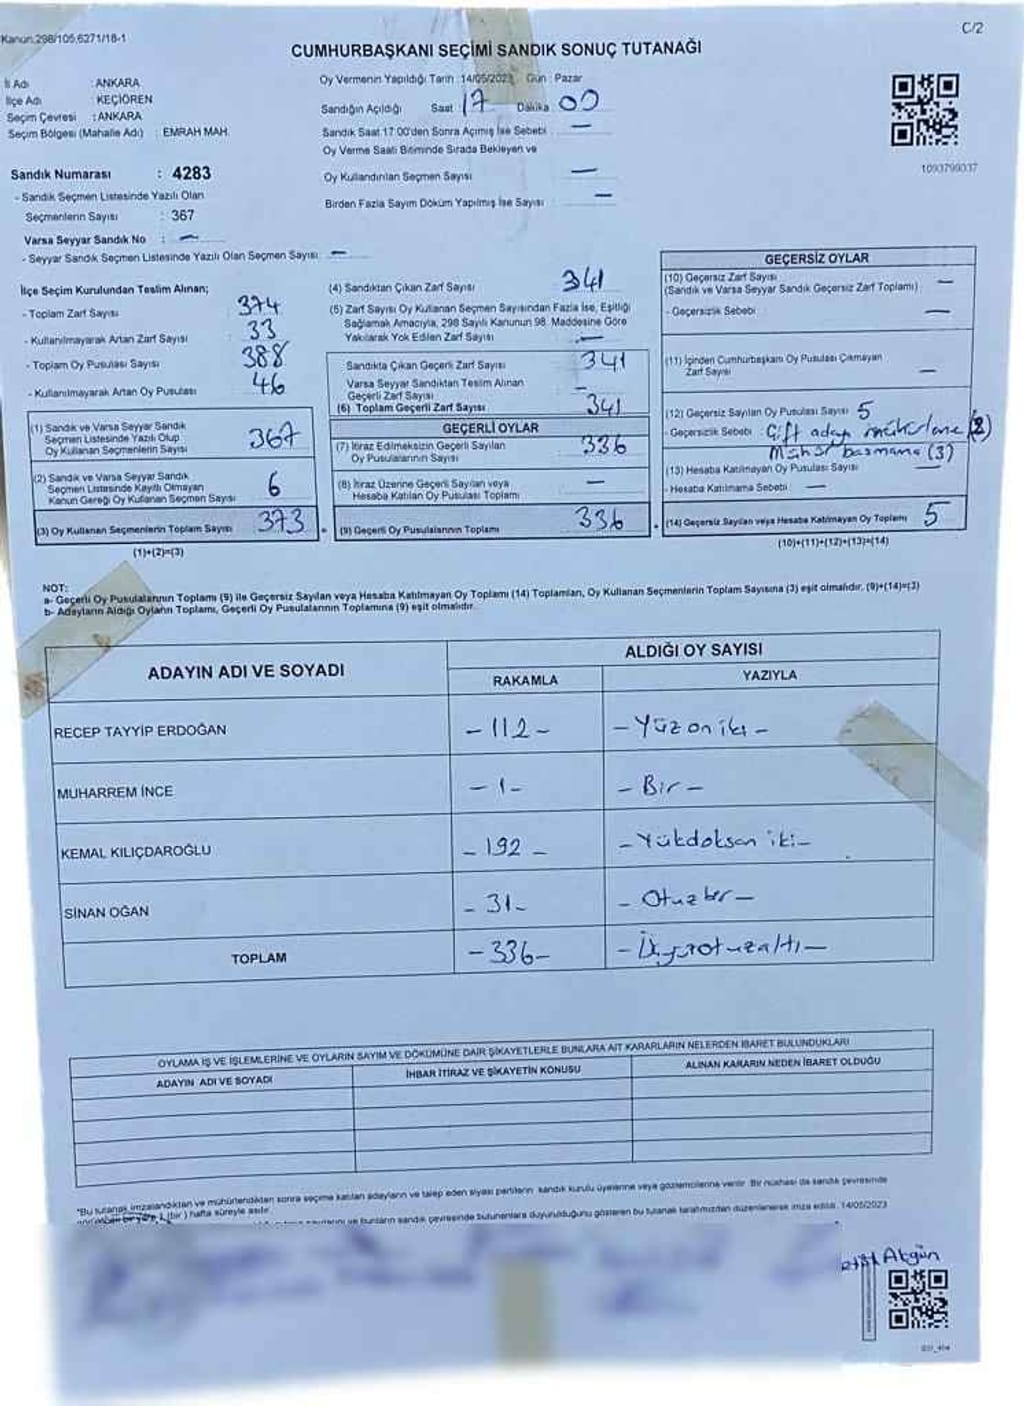 Kanun:298/105,6271/18-1
C/2
CUMHURBAŞKANI SEÇİMİ SANDIK SONUÇ TUTANAĞI
İl Adı : ANKARA
İlçe Adı : KEÇİÖREN
Seçim Çevresi : ANKARA
Seçim Bölgesi (Mahalle Adı) : EMRAH MAH.
Sandık Numarası : 4283
- Sandık Seçmen Listesinde Yazılı Olan
Seçmenlerin Sayısı : 367
Varsa Seyyar Sandık No : —
- Seyyar Sandık Seçmen Listesinde Yazılı Olan Seçmen Sayısı: —
Oy Vermenin Yapıldığı Tarih : 14/05/2023 Gün : Pazar
Sandığın Açıldığı Saat : 17 Dakika 00
Sandık Saat 17:00'den Sonra Açılmış İse Sebebi : —
Oy Verme Saati Bitiminde Sırada Bekleyen ve
Oy Kullandırılan Seçmen Sayısı —
Birden Fazla Sayım Döküm Yapılmış İse Sayısı : —
1093799037
İlçe Seçim Kurulundan Teslim Alınan;
- Toplam Zarf Sayısı : 374
- Kullanılmayarak Artan Zarf Sayısı : 33
- Toplam Oy Pusulası Sayısı : 388
- Kullanılmayarak Artan Oy Pusulası : 46
(1) Sandık ve Varsa Seyyar Sandık
Seçmen Listesinde Yazılı Olup
Oy Kullanan Seçmenlerin Sayısı 367
(2) Sandık ve Varsa Seyyar Sandık
Seçmen Listesinde Kayıtlı Olmayan
Kanun Gereği Oy Kullanan Seçmen Sayısı 6
(3) Oy Kullanan Seçmenlerin Toplam Sayısı 373
(1)+(2)=(3)
(4) Sandıktan Çıkan Zarf Sayısı 341
(5) Zarf Sayısı Oy Kullanan Seçmen Sayısından Fazla İse, Eşitliği
Sağlamak Amacıyla, 298 Sayılı Kanunun 98. Maddesine Göre
Yakılarak Yok Edilen Zarf Sayısı : —
Sandıkta Çıkan Geçerli Zarf Sayısı 341
Varsa Seyyar Sandıktan Teslim Alınan
Geçerli Zarf Sayısı —
(6) Toplam Geçerli Zarf Sayısı 341
GEÇERLİ OYLAR
(7) İtiraz Edilmeksizin Geçerli Sayılan
Oy Pusulalarının Sayısı 336
(8) İtiraz Üzerine Geçerli Sayılan veya
Hesaba Katılan Oy Pusulası Toplamı —
(9) Geçerli Oy Pusulalarının Toplamı 336
GEÇERSİZ OYLAR
(10) Geçersiz Zarf Sayısı
(Sandık ve Varsa Seyyar Sandık Geçersiz Zarf Toplamı) —
- Geçersizlik Sebebi : —
(11) İçinden Cumhurbaşkanı Oy Pusulası Çıkmayan
Zarf Sayısı —
(12) Geçersiz Sayılan Oy Pusulası Sayısı 5
- Geçersizlik Sebebi : Çift aday mühürleme (2)
Mühür basmama (3)
(13) Hesaba Katılmayan Oy Pusulası Sayısı —
- Hesaba Katılmama Sebebi : —
(14) Geçersiz Sayılan veya Hesaba Katılmayan Oy Toplamı 5
(10)+(11)+(12)+(13)=(14)
NOT:
a- Geçerli Oy Pusulalarının Toplamı (9) ile Geçersiz Sayılan veya Hesaba Katılmayan Oy Toplamı (14) Toplamları, Oy Kullanan Seçmenlerin Toplam Sayısına (3) eşit olmalıdır. (9)+(14)=(3)
b- Adayların Aldığı Oyların Toplamı, Geçerli Oy Pusulalarının Toplamına (9) eşit olmalıdır.
ADAYIN ADI VE SOYADI
ALDIĞI OY SAYISI
RAKAMLA YAZIYLA
RECEP TAYYİP ERDOĞAN - 112 - - Yüzoniki -
MUHARREM İNCE - 1 - - Bir -
KEMAL KILIÇDAROĞLU - 192 - - Yükdoksan iki -
SİNAN OĞAN - 31 - - Otuzbir -
TOPLAM - 336 - - Üçyüzotuzaltı -
OYLAMA İŞ VE İŞLEMLERİNE VE OYLARIN SAYIM VE DÖKÜMÜNE DAİR ŞİKAYETLERLE BUNLARA AİT KARARLARIN NELERDEN İBARET BULUNDUKLARI
ADAYIN ADI VE SOYADI İHBAR İTİRAZ VE ŞİKAYETİN KONUSU ALINAN KARARIN NEDEN İBARET OLDUĞU
*Bu tutanak imzalandıktan ve mühürlendikten sonra seçime katılan adayların ve talep eden siyasi partilerin sandık kurulu üyelerine veya gözlemcilerine verilir. Bir nüshası da sandık çevresinde
(bir) hafta süreyle asılır.
ve bunların sandık çevresinde bulunanlara duyurulduğunu gösteren bu tutanak tarafımızdan düzenlenerek imza edildi. 14/05/2023
Akgün